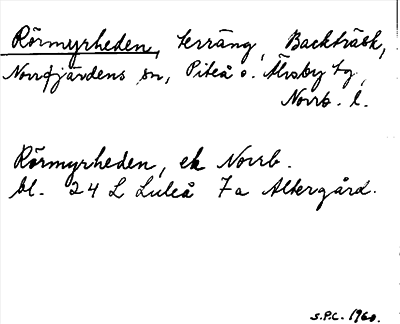 Rörmyrheden, terräng, Backträsk,
Norrfjärdens sn, Piteå o. Älvsby tg,
Norrb. l.
Rörmyrheden, ek Norrb.
bl. 24 L Luleå 7a Altergård.
S.P.C. 1960.